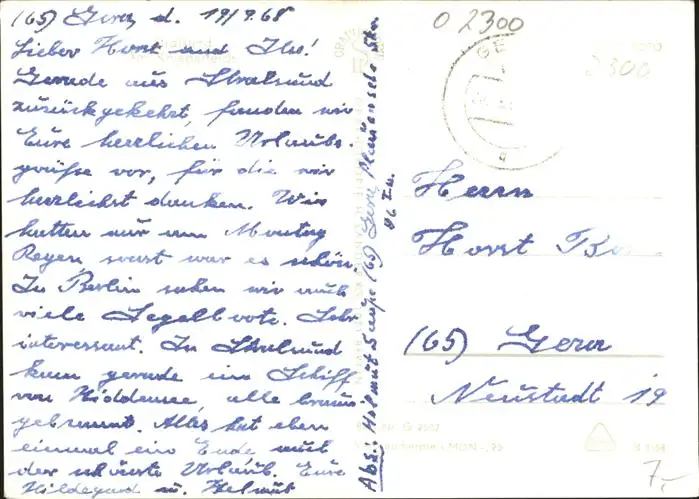 (65) Gera, d. 19/9.68
Lieber Horst und Ilse!
Gerade aus Stralsund
zurückgekehrt, fanden wir
Eure herzlichen Urlaubs-
grüße vor, für die wir
herzlichst danken. Wir
hatten nur am Montag
Regen sonst war es schön.
In Berlin sahen wir auch
viele Segelboote. Sehr
interessant. In Stralsund
kam gerade ein Schiff
von Hiddensee, alle braun
gebrannt. Alles hat eben
einmal ein Ende, auch
der schönste Urlaub. Eure
Hildegard u. Helmut
Abs.: Helmut (65) Gera
O 2300
2300
Herrn
Horst
(65) Gera
Neustadt 19
7,-